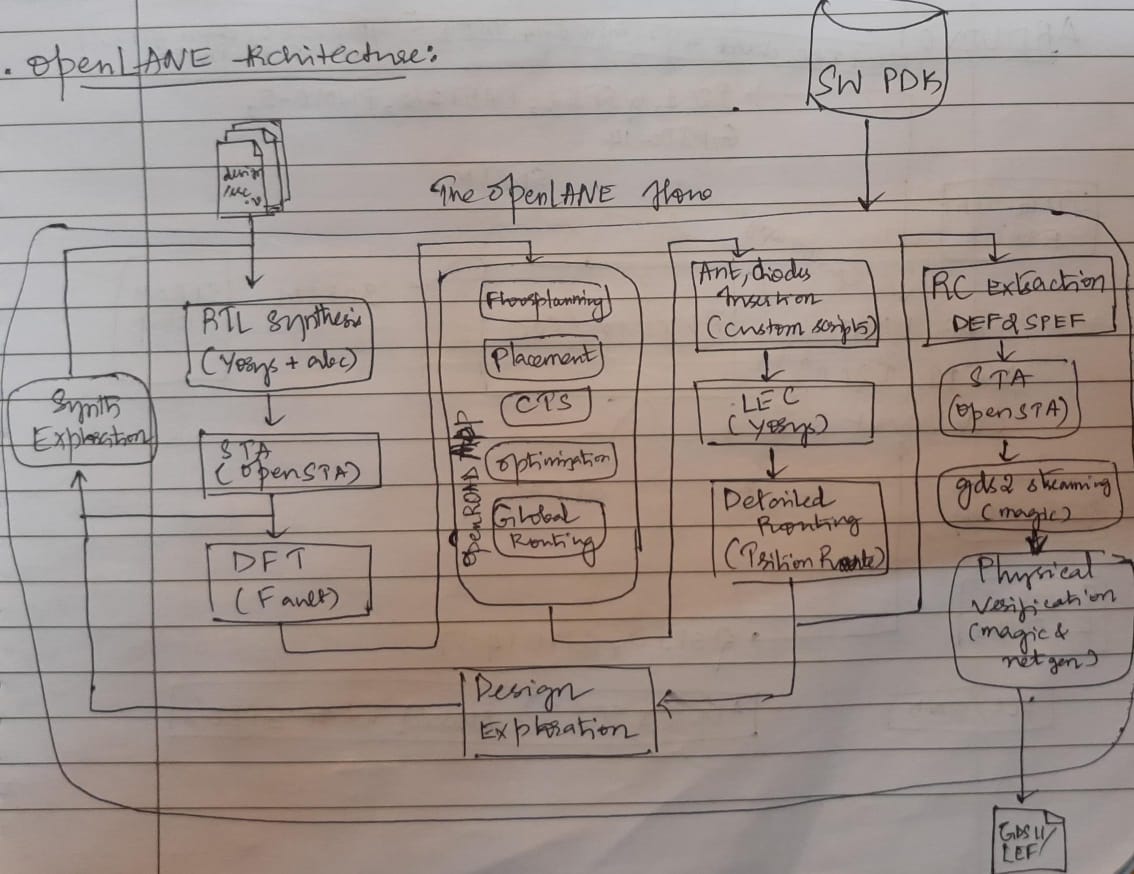 . OpenLANE Architecture:
SW PDK
design
The OpenLANE flow
RTL Synthesis
(Yosys + abc)
STA
(OpenSTA)
DFT
(Fault)
Synth
Exploration
OpenROAD App
Floorplanning
Placement
CTS
Optimization
Global
Routing
Ant, diodes
Insertion
(custom scripts)
LEC
(Yosys)
Detailed
Routing
Design
Exploration
RC Extraction
DEF2SPEF
STA
(OpenSTA)
gds2 streaming
(magic)
Physical
Verification
(magic &
netgen)
GDSII/
LEF/